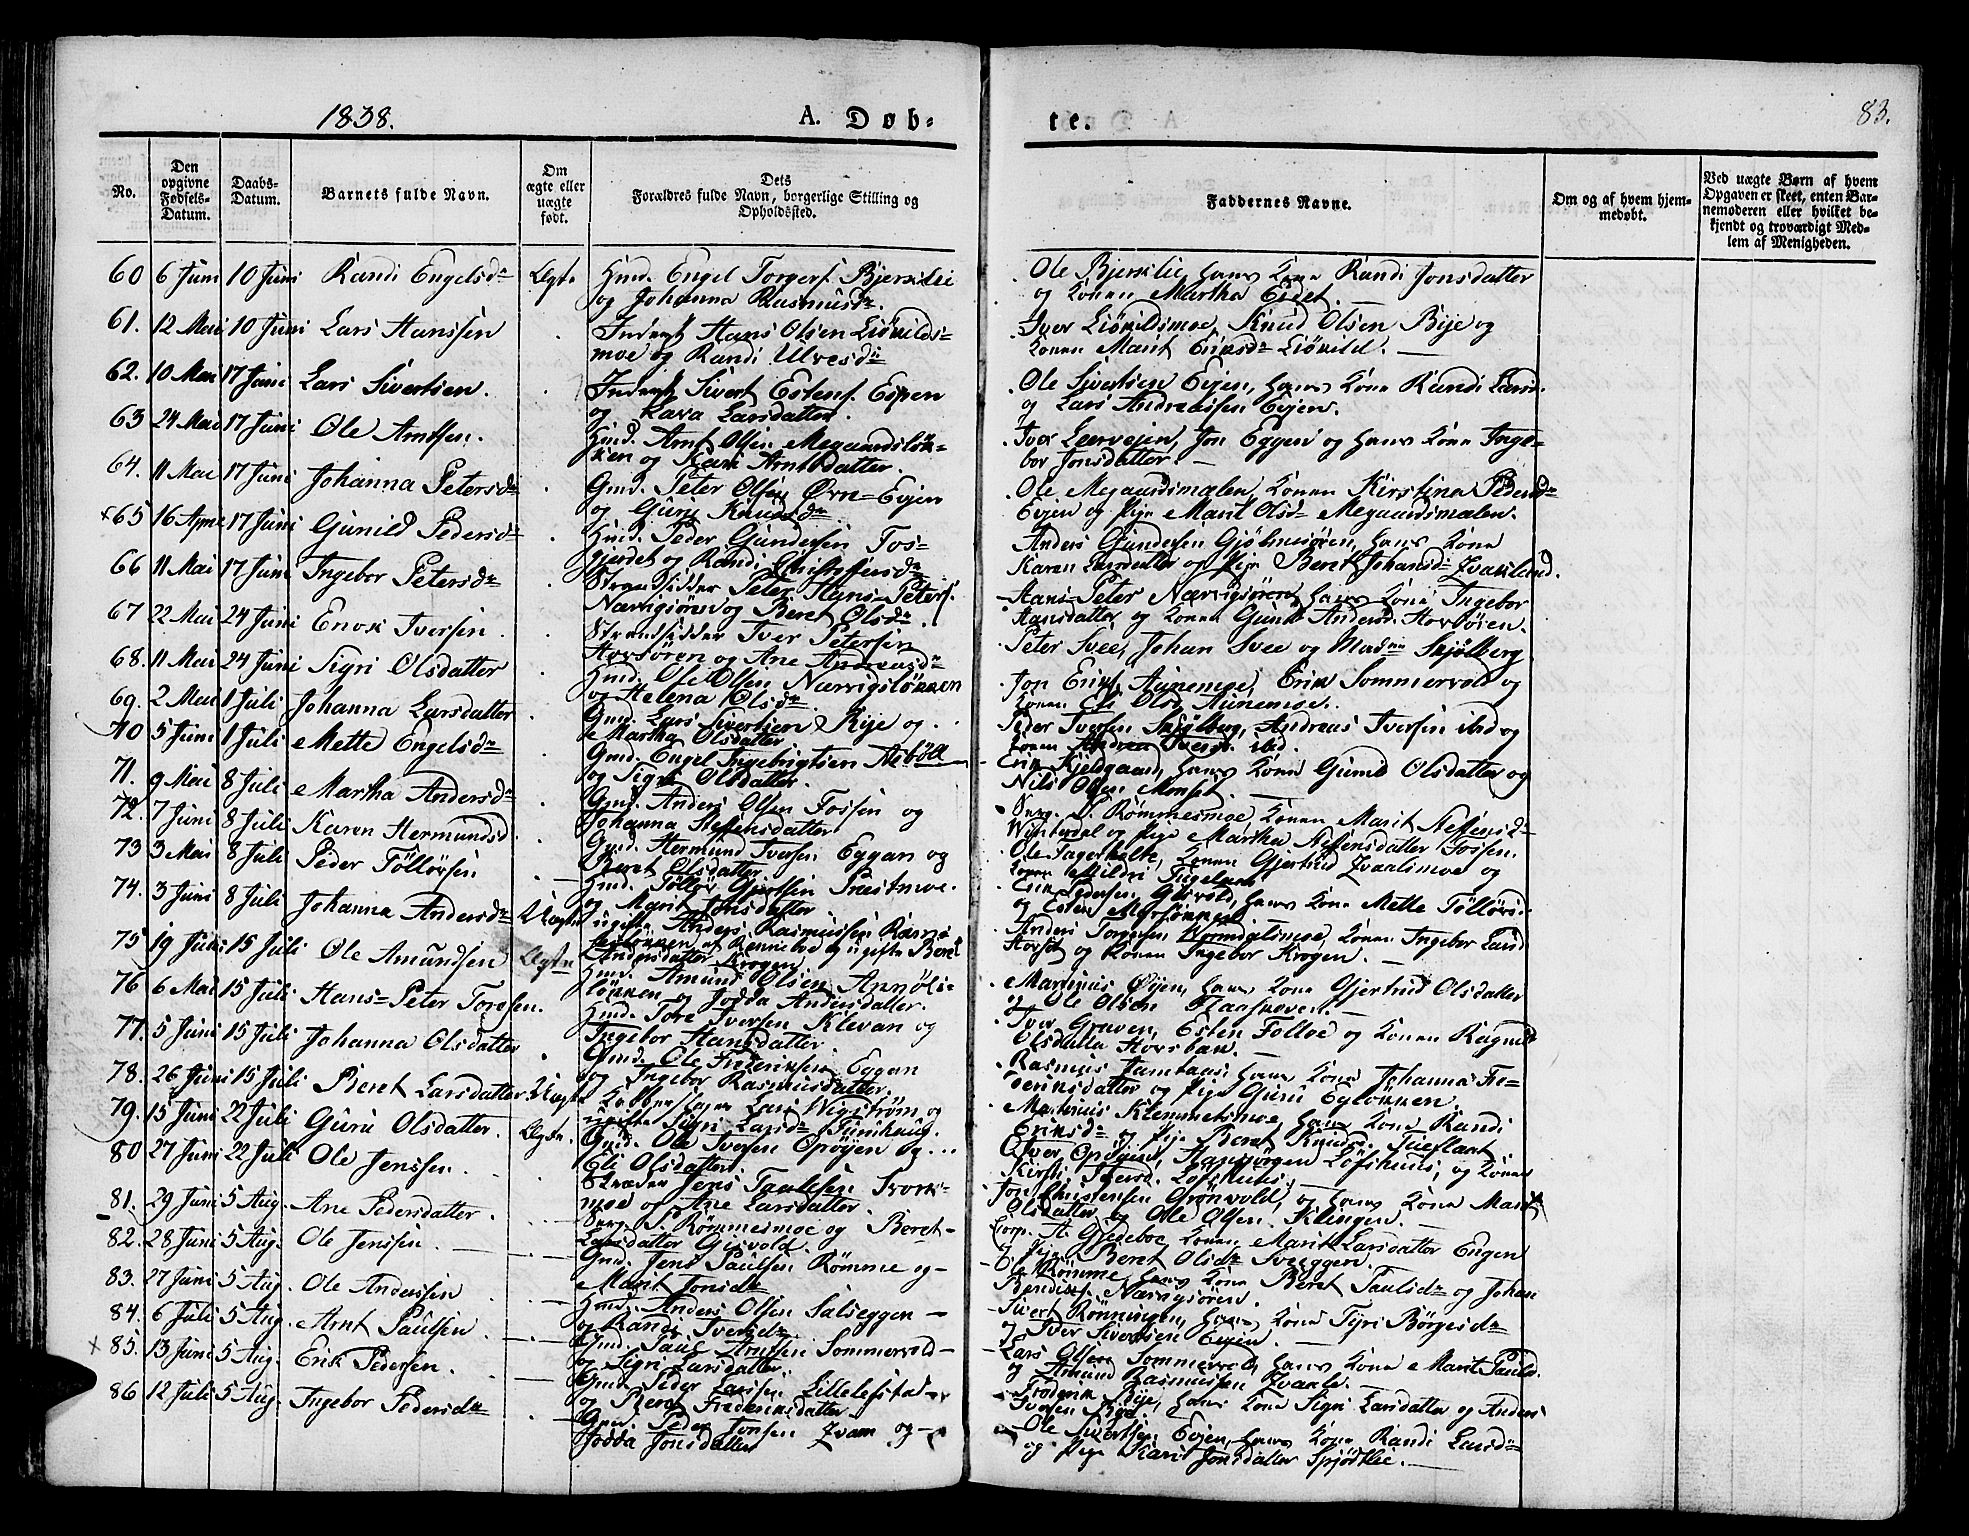 1838.
A. Døb-
te.
83.
No.
Den opgivne Fødsels-Datum.
Daabs-Datum.
Barnets fulde Navn.
Om ægte eller uægte født.
Dets Forældres fulde Navn, borgerlige Stilling og Opholdssted.
Faddernes Navne.
Om og af hvem hjem-medøbt.
Ved uægte Børn af hvem Opgaven er skeet, enten Bar-nemoderen eller hvilket be-kjendt og troværdigt Med-lem af Menigheden.
60 6 Juni 10 Juni Randi Engelsd Ægte Gmd. Engel Torgers. Bjerklie
og Johanna Rasmusd.
Ole Bjerklie, hans Kone Randi Jonsdatter
og Konen Martha Eidet.
61. 12 Mai 10 Juni Lars Hanssen
Inderst Hans Olsen Liökilds-
moe og Randi Ulvesd
Iver Liökildsmoe, Knud Olsen Rije og
Konen Marit Eriksd Liökild.
62. 10 Mai 17 Juni Lars Sivertsen.
Inderst Sivert Estens. Espen
og Kara Larsdatter.
Ole Sivertsen Evjen, hans Kone Randi Larsd.
og Lars Andreassen Evjen.
63 24 Mai 17 Juni Ole Arntsen.
Hmd. Arnt Olsen Megaardslök-
ken og Kari Arntsdatter.
Iver Leervejen, Jon Eggen og hans Kone Inge-
bor Jonsdatter.
64. 11 Mai 17 Juni Johanna Petersd
Gmd. Peter Olsen Örn-Evjen
og Guru Knudsd
Ole Megaardsmælen, Konen Kirstina Pedersd
Evjen og Pige Marit Olsd Megaardsmælen.
x 65 16 April 17 Juni Gunild Pedersd
Hmd. Peder Gundersen Fos-
gjerdet og Randi
Anders Gundersen Gjölmesören, hans Kone
Karen Larsdatter og Pige Beret Johansd
66 11 Mai 17 Juni Ingebor Petersd
Strandsidder Peter Hans-Peters.
Nærvigsören og Beret Olsd.
Hans-Peter Nærvigsören, hans Kone Ingebor
Hansdatter og Konen Anders. Hovsöien.
67 22 Mai 24 Juni Enok Iversen
Strandsidder Iver Petersen
Hovsören og Ane Andreasd
Peter Svee, Johan Svee og Skjölberg
68. 11 Mai 24 Juni Sigri Olsdatter
Hmd. Ole Olsen Nærvigslökken
og Helena Olsd.
Jon Eriks. Aunemoe, Erik Sommervold og
Konen Olsd. Aunemoe.
69. 2 Mai 1 Juli Johanna Larsdatter
Gmd. Lars Sivertsen Rije og
Martha Olsdatter
Peder Iversen Skjölberg, Andreas Iversen ibd og
Konen Iversd. ibd.
70 5 Juni 1 Juli Mette Engelsd
Gmd. Engel Ingebrigtsen Asböll
og Sigri Olsdatter
Erik Kjeldgaard, hans Kone Gunild Olsdatter og
Nils Olsen Monset.
71. 9 Mai 8 Juli Martha Andersd
Gmd. Anders Olsen Fossen og
Johanna Steffensdatter
Serg. P. Römmesmoe, Konen Marit Steffensd
Winterdal og Pige Martha Steffensdatter Fossen.
72. 7 Juni 8 Juli Karen Hermundsd
Gmd. Hermund Iversen Eggan og
Beret Olsdatter.
Ole Fagerholte, Konen Gjertrud Kvaalsmoe og
Konen Mildri
73 3 Mai 8 Juli Peder Töllörsen
Hmd. Töllör Gjertsen Præstmoe.
og Marit Jonsdatter
Erik Pedersen Gisvold, hans Kone Mette Töllörs.
og Esten
74. 3 Juni 8 Juli Johanna Andersd Uægte
ugifte Anders Rasmussen
og ugifte Beret
Andersdatter Krogen
Anders Torgersen Kone Ingebor Larsd
Horset og Konen Ingebor Krogen.
75 19 Juni 15 Juli Ole Amundsen Ægte
Hmd. Amund Olsen
lökken og Jodda Andersdatter.
Martinus Öijen, hans Kone Gjertrud Olsdatter
og Ole Olsen
76 6 Mai 15 Juli Hans-Peter Toresen.
Hmd. Tore Iversen Klevan og
Ingebor Hansdatter
Iver Gruven, Esten Folloe og Konen Ragnil
Olsdatter
77. 5 Juni 15 Juli Johanna Olsdatter
Gmd. Ole Frederiksen Eggan
og Ingebor Rasmusdatter
Rasmus hans Kone Johanna Fre-
deriksdatter og Pige Guru Eglökken.
78. 26 Juni 15 Juli Beret Larsdatter. Uægte
Kobberslager Lars Wigström og
ugifte Sigri Larsd
Martinus Klemmetsmoe, hans Kone Randi
Eriksd og Pige Beret Knudsd.
79. 15 Juni 22 Juli Guru Olsdatter. Ægte.
Gmd. Ole Iversen Opöyen og
Eli Olsdatter
Iver Opöyen, Hansjörgen Löfshuus, og Konen
Kirsti Löfshuus.
80 27 Juni 22 Juli Ole Jenssen
Jens Paulsen
moe og Ane Larsdatter.
Jon Christensen Grönvold, og hans Kone Marit
Olsdatter og Ole Olsen Klingen.
81. 29 Juni 5 Aug. Ane Pedersdatter
Serg. P. Römmesmoe og Beret
Larsdatter Gisvold.
Corp. A. Gjedeboe, Konen Marit Larsdatter Engen
og Pige Beret Olsd Sveeggen.
82. 28 Juni 5 Aug. Ole Jenssen
Gmd. Jens Paulsen Römme og
Marit Jonsd
Ole Römme, hans Kone Beret Paulsd og Johan
Nærvigsören.
83. 27 Juni 5 Aug. Ole Anderssen
Hmd. Anders Olsen Salseggen
og Randi Iversd
Sivert Rönningen, hans Kone Tyri Börgesd
og Iver Sivertsen Evjen.
84. 6 Juli 5 Aug. Arnt Paulsen
Gmd. Paul Arntsen Sommervold
og Sigri Larsdatter
Lars Olsen Sommervold, hans Kone Marit Paulsd.
og Amund Rasmussen Kvaale.
x 85. 13 Juni 5 Aug. Erik Pedersen.
Gmd. Peder Larssen Lillelefstad
og Beret Frederiksdatter
Frederik Rije, hans Kone Sigri Larsdatter og Anders
Iversen Rije.
86 12 Juli 5 Aug. Ingebor Pedersd
Gmd. Peder Jonsen Kvam og
Jodda Jonsdatter
Ole Sivertsen Evjen, hans Kone Randi Larsd
og Pige Karit Jonsdatter Spjödtlie.